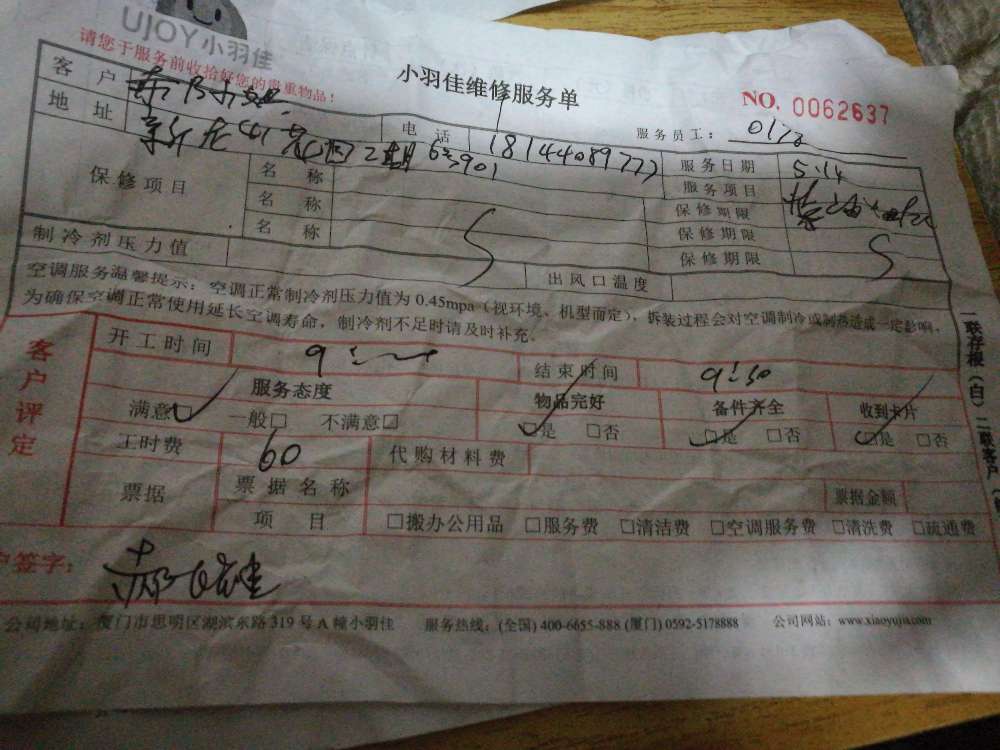 UJOY小羽佳
请您于服务前收拾好您的贵重物品!
小羽佳维修服务单
NO. 0062637
服务员工:
客户
地址
电话 18144089777
服务日期 5.14
服务项目
保修项目
名称
名称
名称
保修期限
保修期限
保修期限
制冷剂压力值
出风口温度
空调服务温馨提示:空调正常制冷剂压力值为0.45mpa(视环境、机型而定),拆装过程会对空调制冷或制热造成一定影响,
为确保空调正常使用延长空调寿命,制冷剂不足时请及时补充。
客户评定
开工时间
结束时间 9:30
服务态度 物品完好 备件齐全 收到卡片
满意□ 一般□ 不满意□ □是 □否 □是 □否 □是 □否
工时费 60 代购材料费
票据 票据名称 票据金额
项目 □搬办公用品 □服务费 □清洁费 □空调服务费 □清洗费 □疏通费
户签字:
公司地址:厦门市思明区湖滨东路319号A幢小羽佳 服务热线:(全国) 400-6655-888 (厦门) 0592-5178888 公司网站:www.xiaoyujia.com
一联存根(白)二联客户